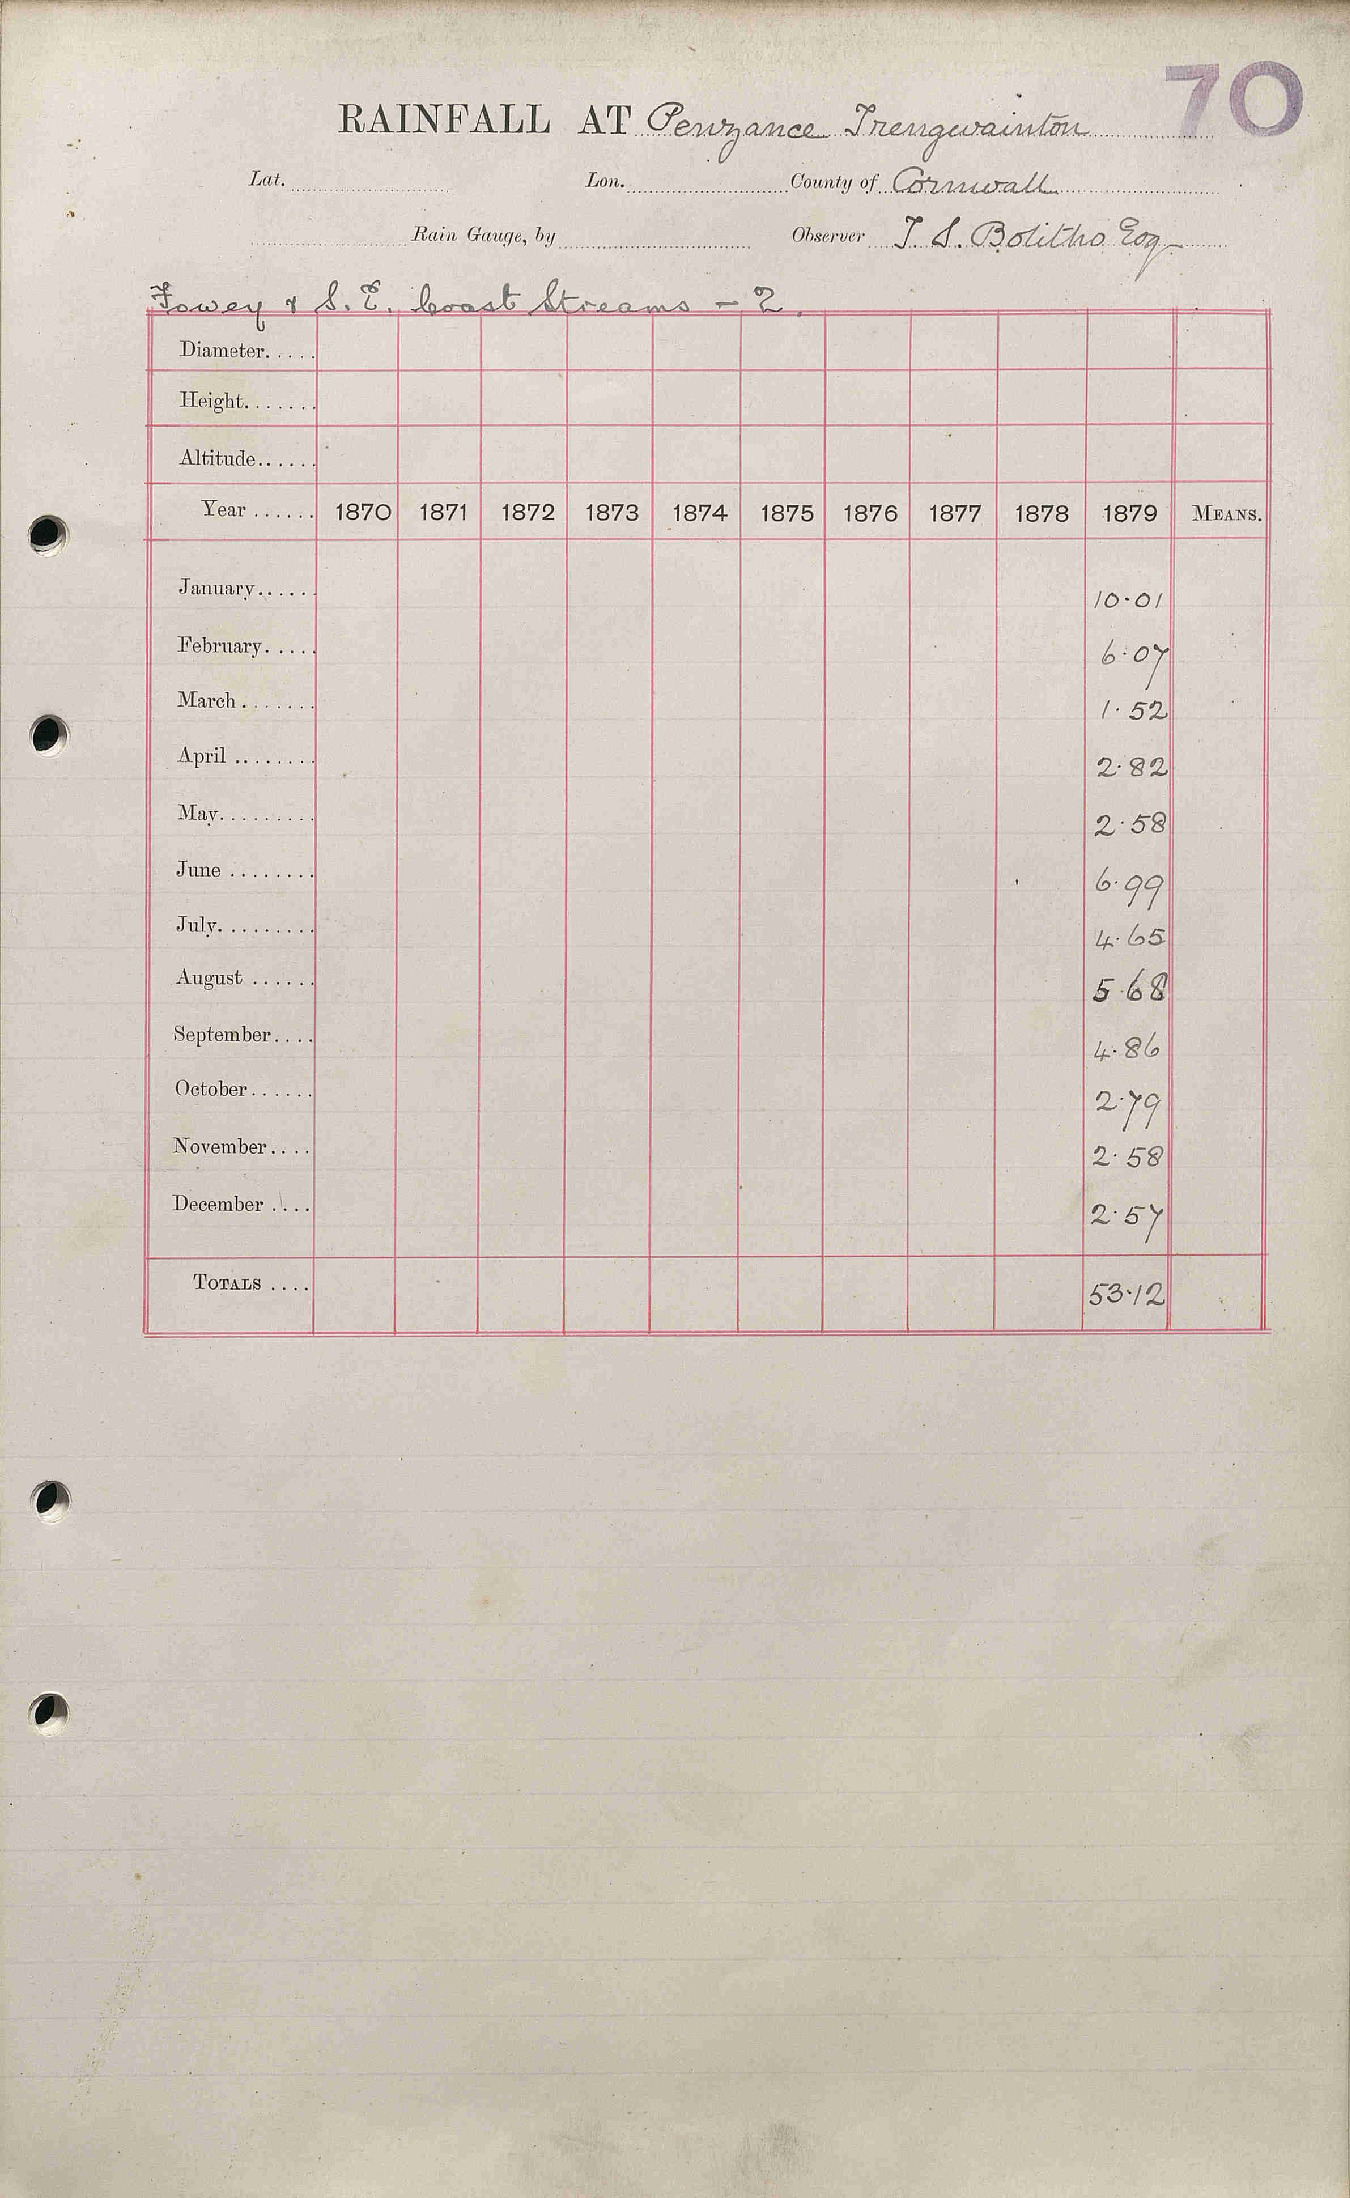 70
RAINFALL AT Penzance Trengwainton
Lat. Lon. County of Cornwall
Rain Gauge, by Observer T. S. Bolitho Esq
Fowey & S.E. Coast Streams - 2.
Diameter.....
Height.......
Altitude......
Year ...... 1870 1871 1872 1873 1874 1875 1876 1877 1878 1879 MEANS.
January...... 10.01
February..... 6.07
March....... 1.52
April ........ 2.82
May......... 2.58
June ........ 6.99
July......... 4.65
August ...... 5.68
September.... 4.86
October...... 2.79
November.... 2.58
December .... 2.57
TOTALS .... 53.12